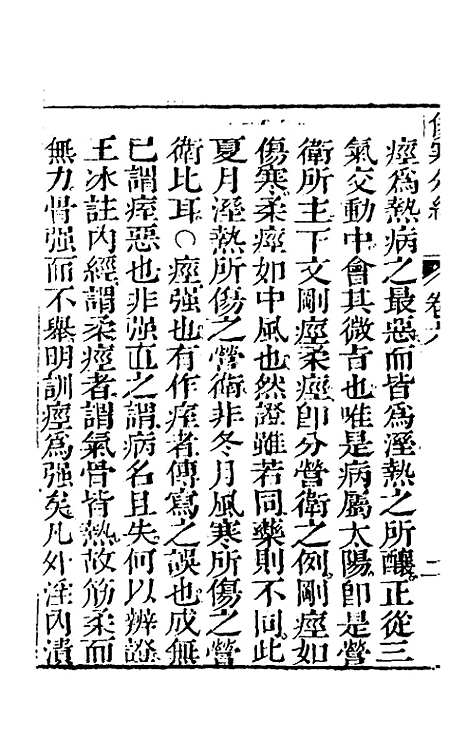 傷寒分經 卷六 二
痙爲熱病之最惡而皆爲溼熱之所釀正從三
氣交動中會其微旨也唯是病屬太陽卽是營
衛所主下文剛痙柔痙卽分營衛之例剛痙如
傷寒柔痙如中風也然證雖若同藥則不同此
夏月溼熱所傷之營衛非冬月風寒所傷之營
衛比耳○痙強也有作痓者傳寫之誤也成無
已謂痓惡也非强直之謂病名且失何以辨證
王冰註內經謂柔痙者謂氣骨皆熱故筋柔而
無力骨强而不舉明訓痙爲强矣凡外淫內潰